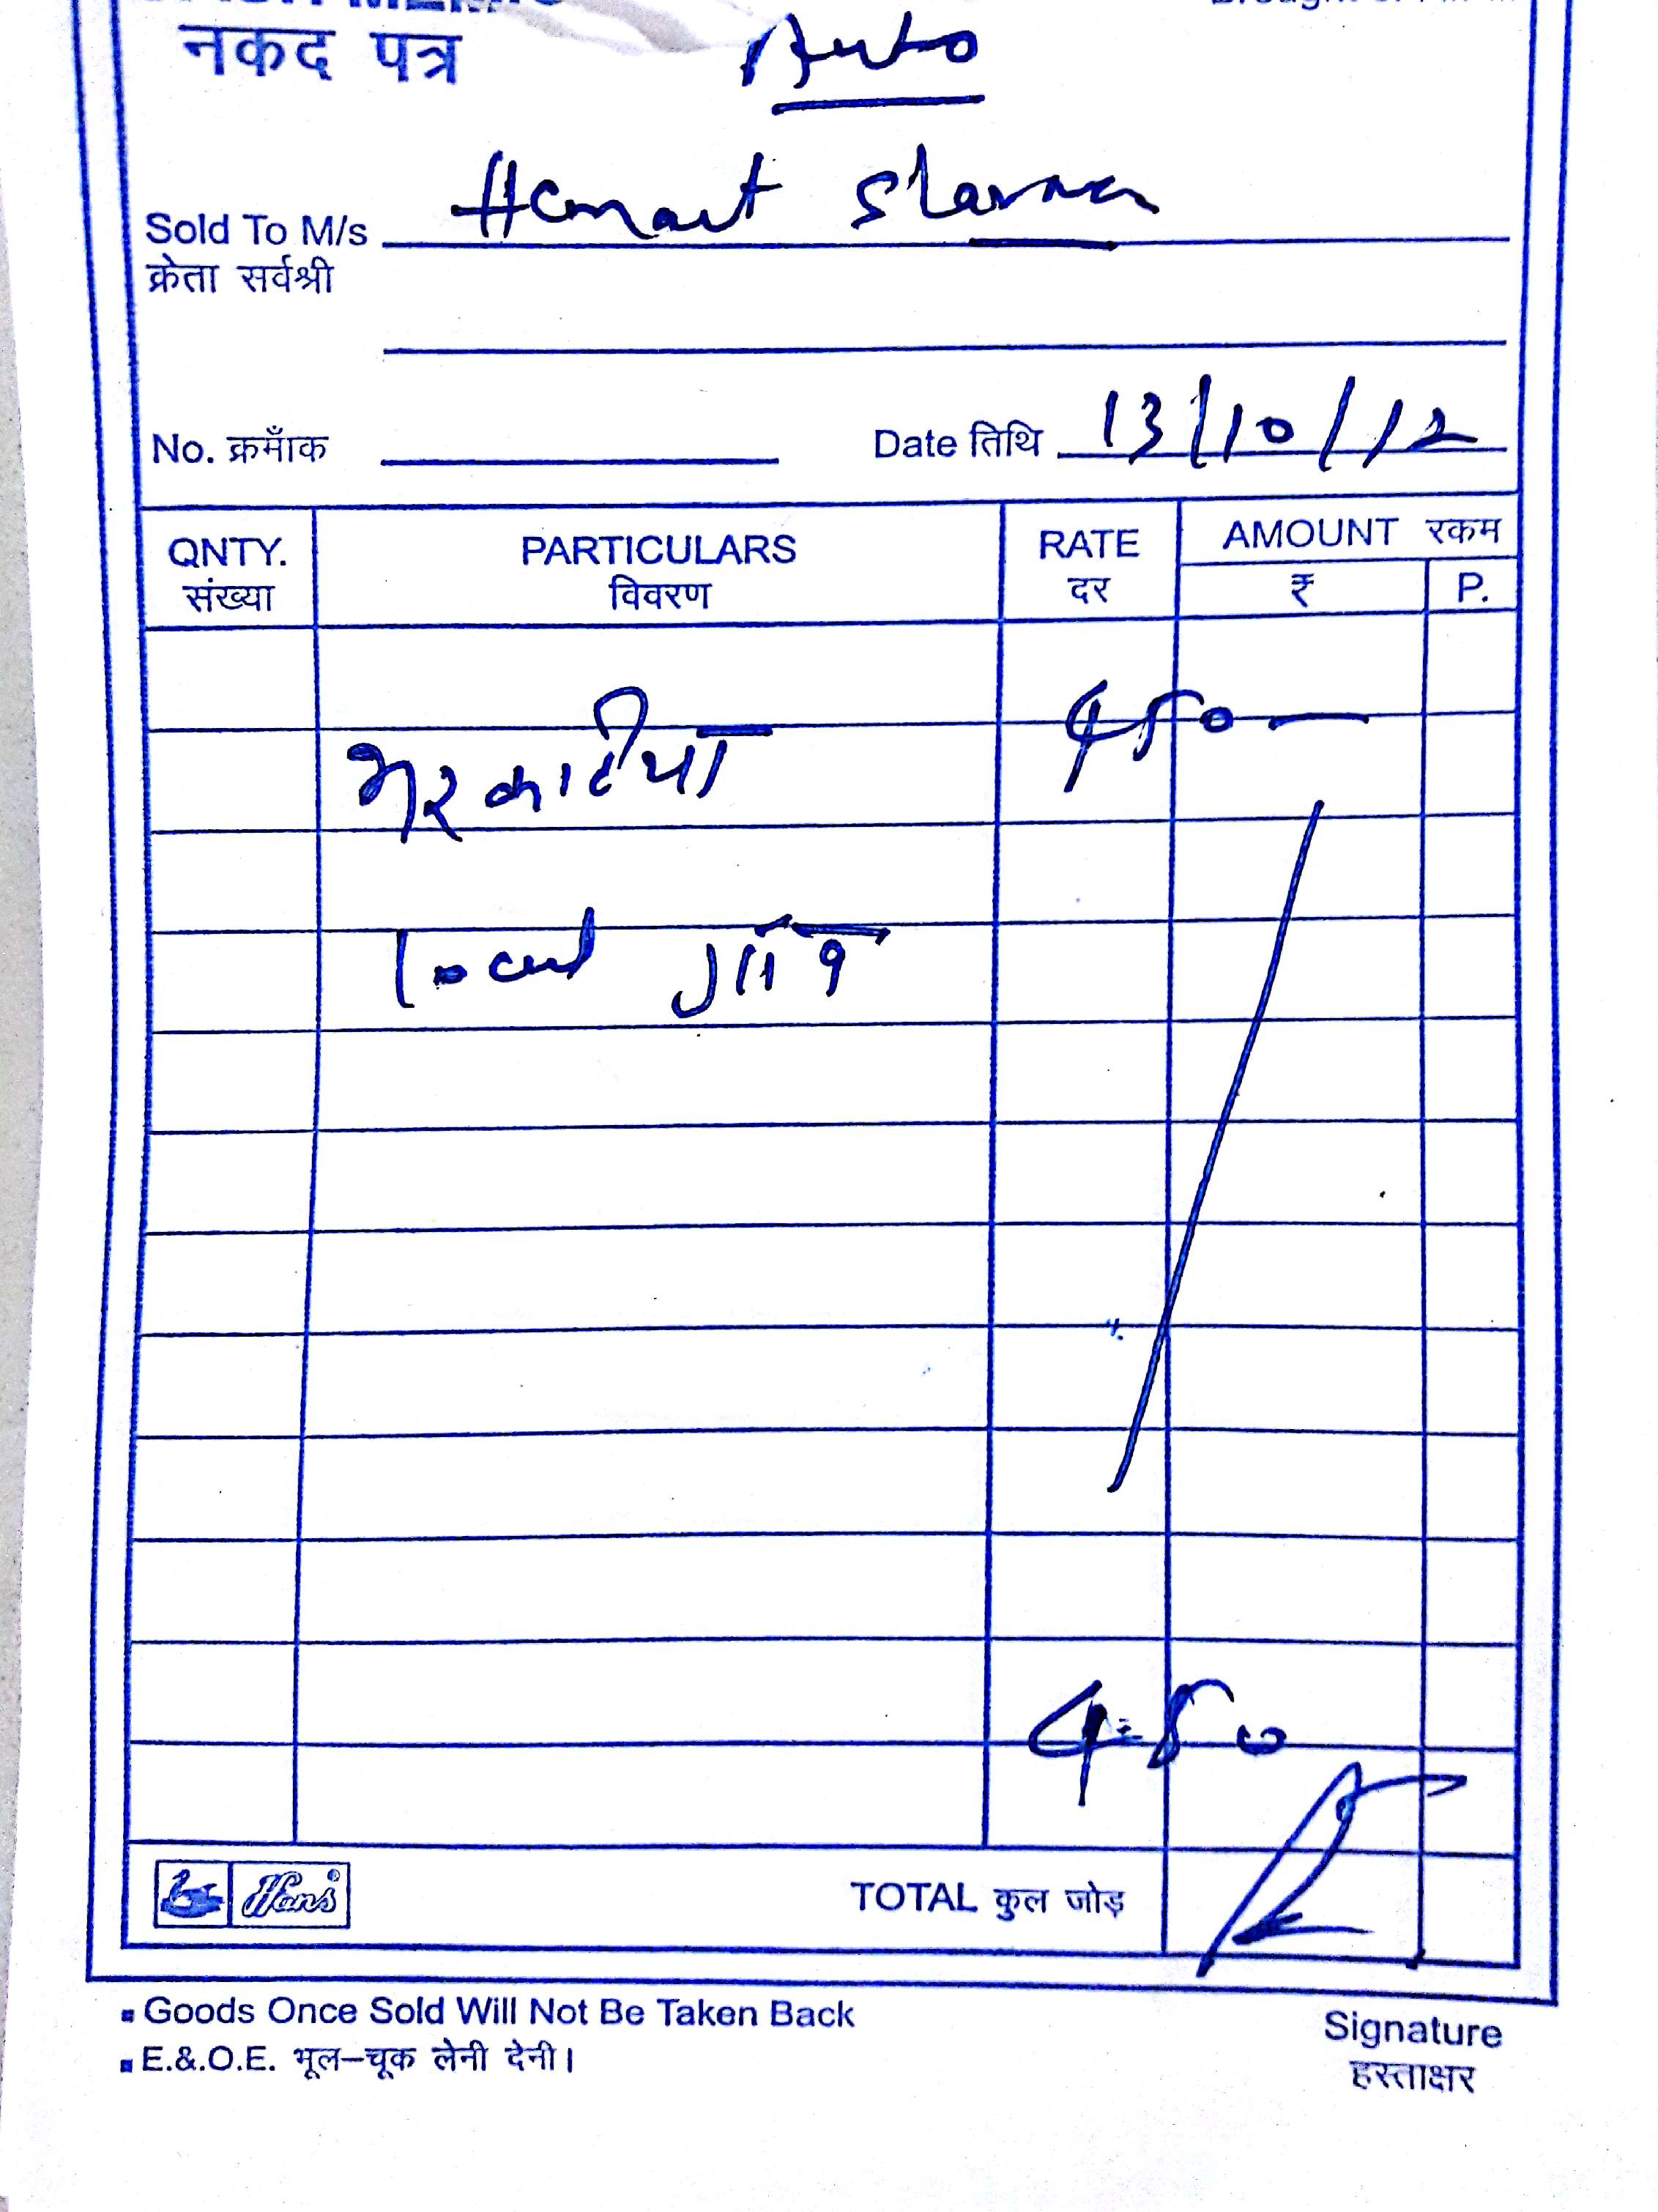 नकद पत्र
Auto
Sold To M/s Hemant Sharma
क्रेता सर्वश्री
No. क्रमाँक Date तिथि 13/10/12
QNTY. PARTICULARS RATE AMOUNT रकम
संख्या विवरण दर ₹ P.
450 —
local गाँव
450
Hans TOTAL कुल जोड़
Goods Once Sold Will Not Be Taken Back
E.&.O.E. भूल–चूक लेनी देनी।
Signature
हस्ताक्षर